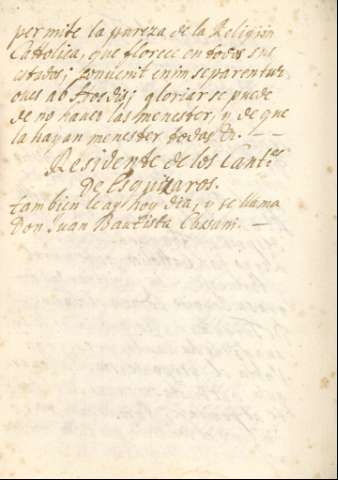 permite la pureza de la Religion
Cattolica, que florece en todos sus
estados; convenit enim separentur
oves ab
gloriarse puede
de no haver las menester, y de que
la hayan menester todas
Residente de los Cant.es
de Esguizaros.
tambien le ay hoy dia, y se llama
Don Juan Bautista Cassani.